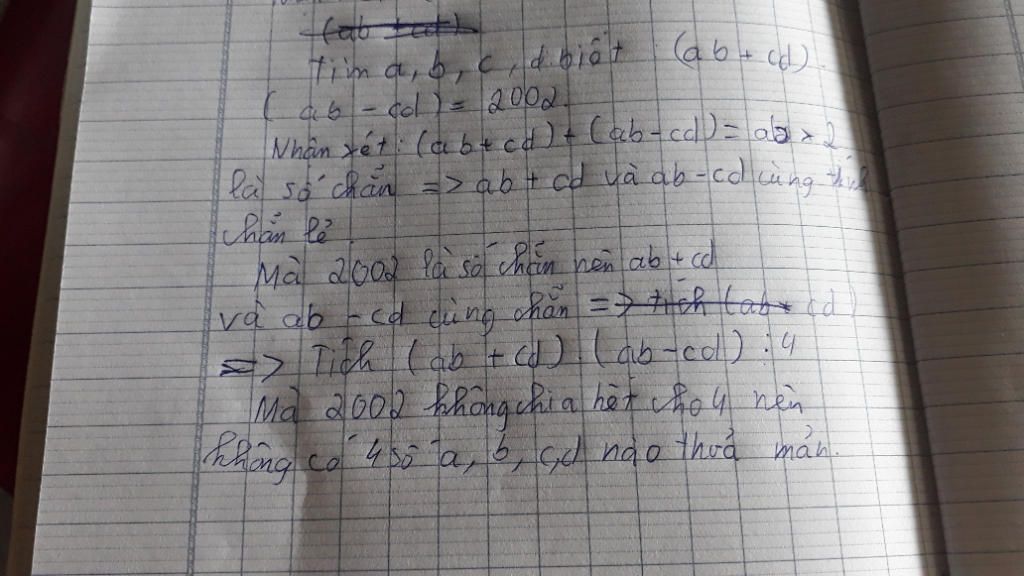 (ab + cd)
Tìm a, b, c, d biết (ab + cd).
(ab - cd) = 2002.
Nhận xét: (ab + cd) + (ab - cd) = ab × 2
là số chẵn => ab + cd và ab - cd cùng tính
chẵn lẻ.
Mà 2002 là số chẵn nên ab + cd
và ab - cd cùng chẵn => tích (ab - cd)
=> Tích (ab + cd).(ab - cd) : 4
Mà 2002 không chia hết cho 4 nên
không có 4 số a, b, c, d nào thoả mản.